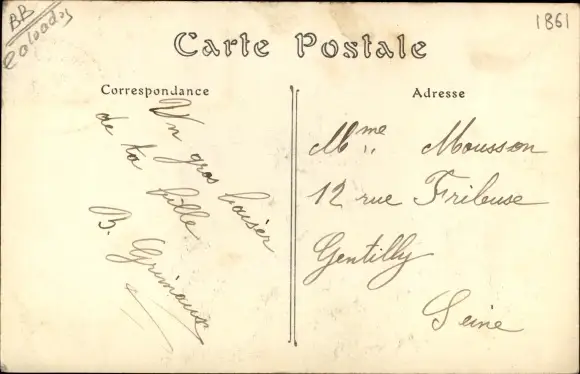 BB
1861
Carte Postale
Correspondance
Adresse
Un gros baiser
de ta fille
B. Grimaux
Mme Mousson
12 rue Frileuse
Gentilly
Seine